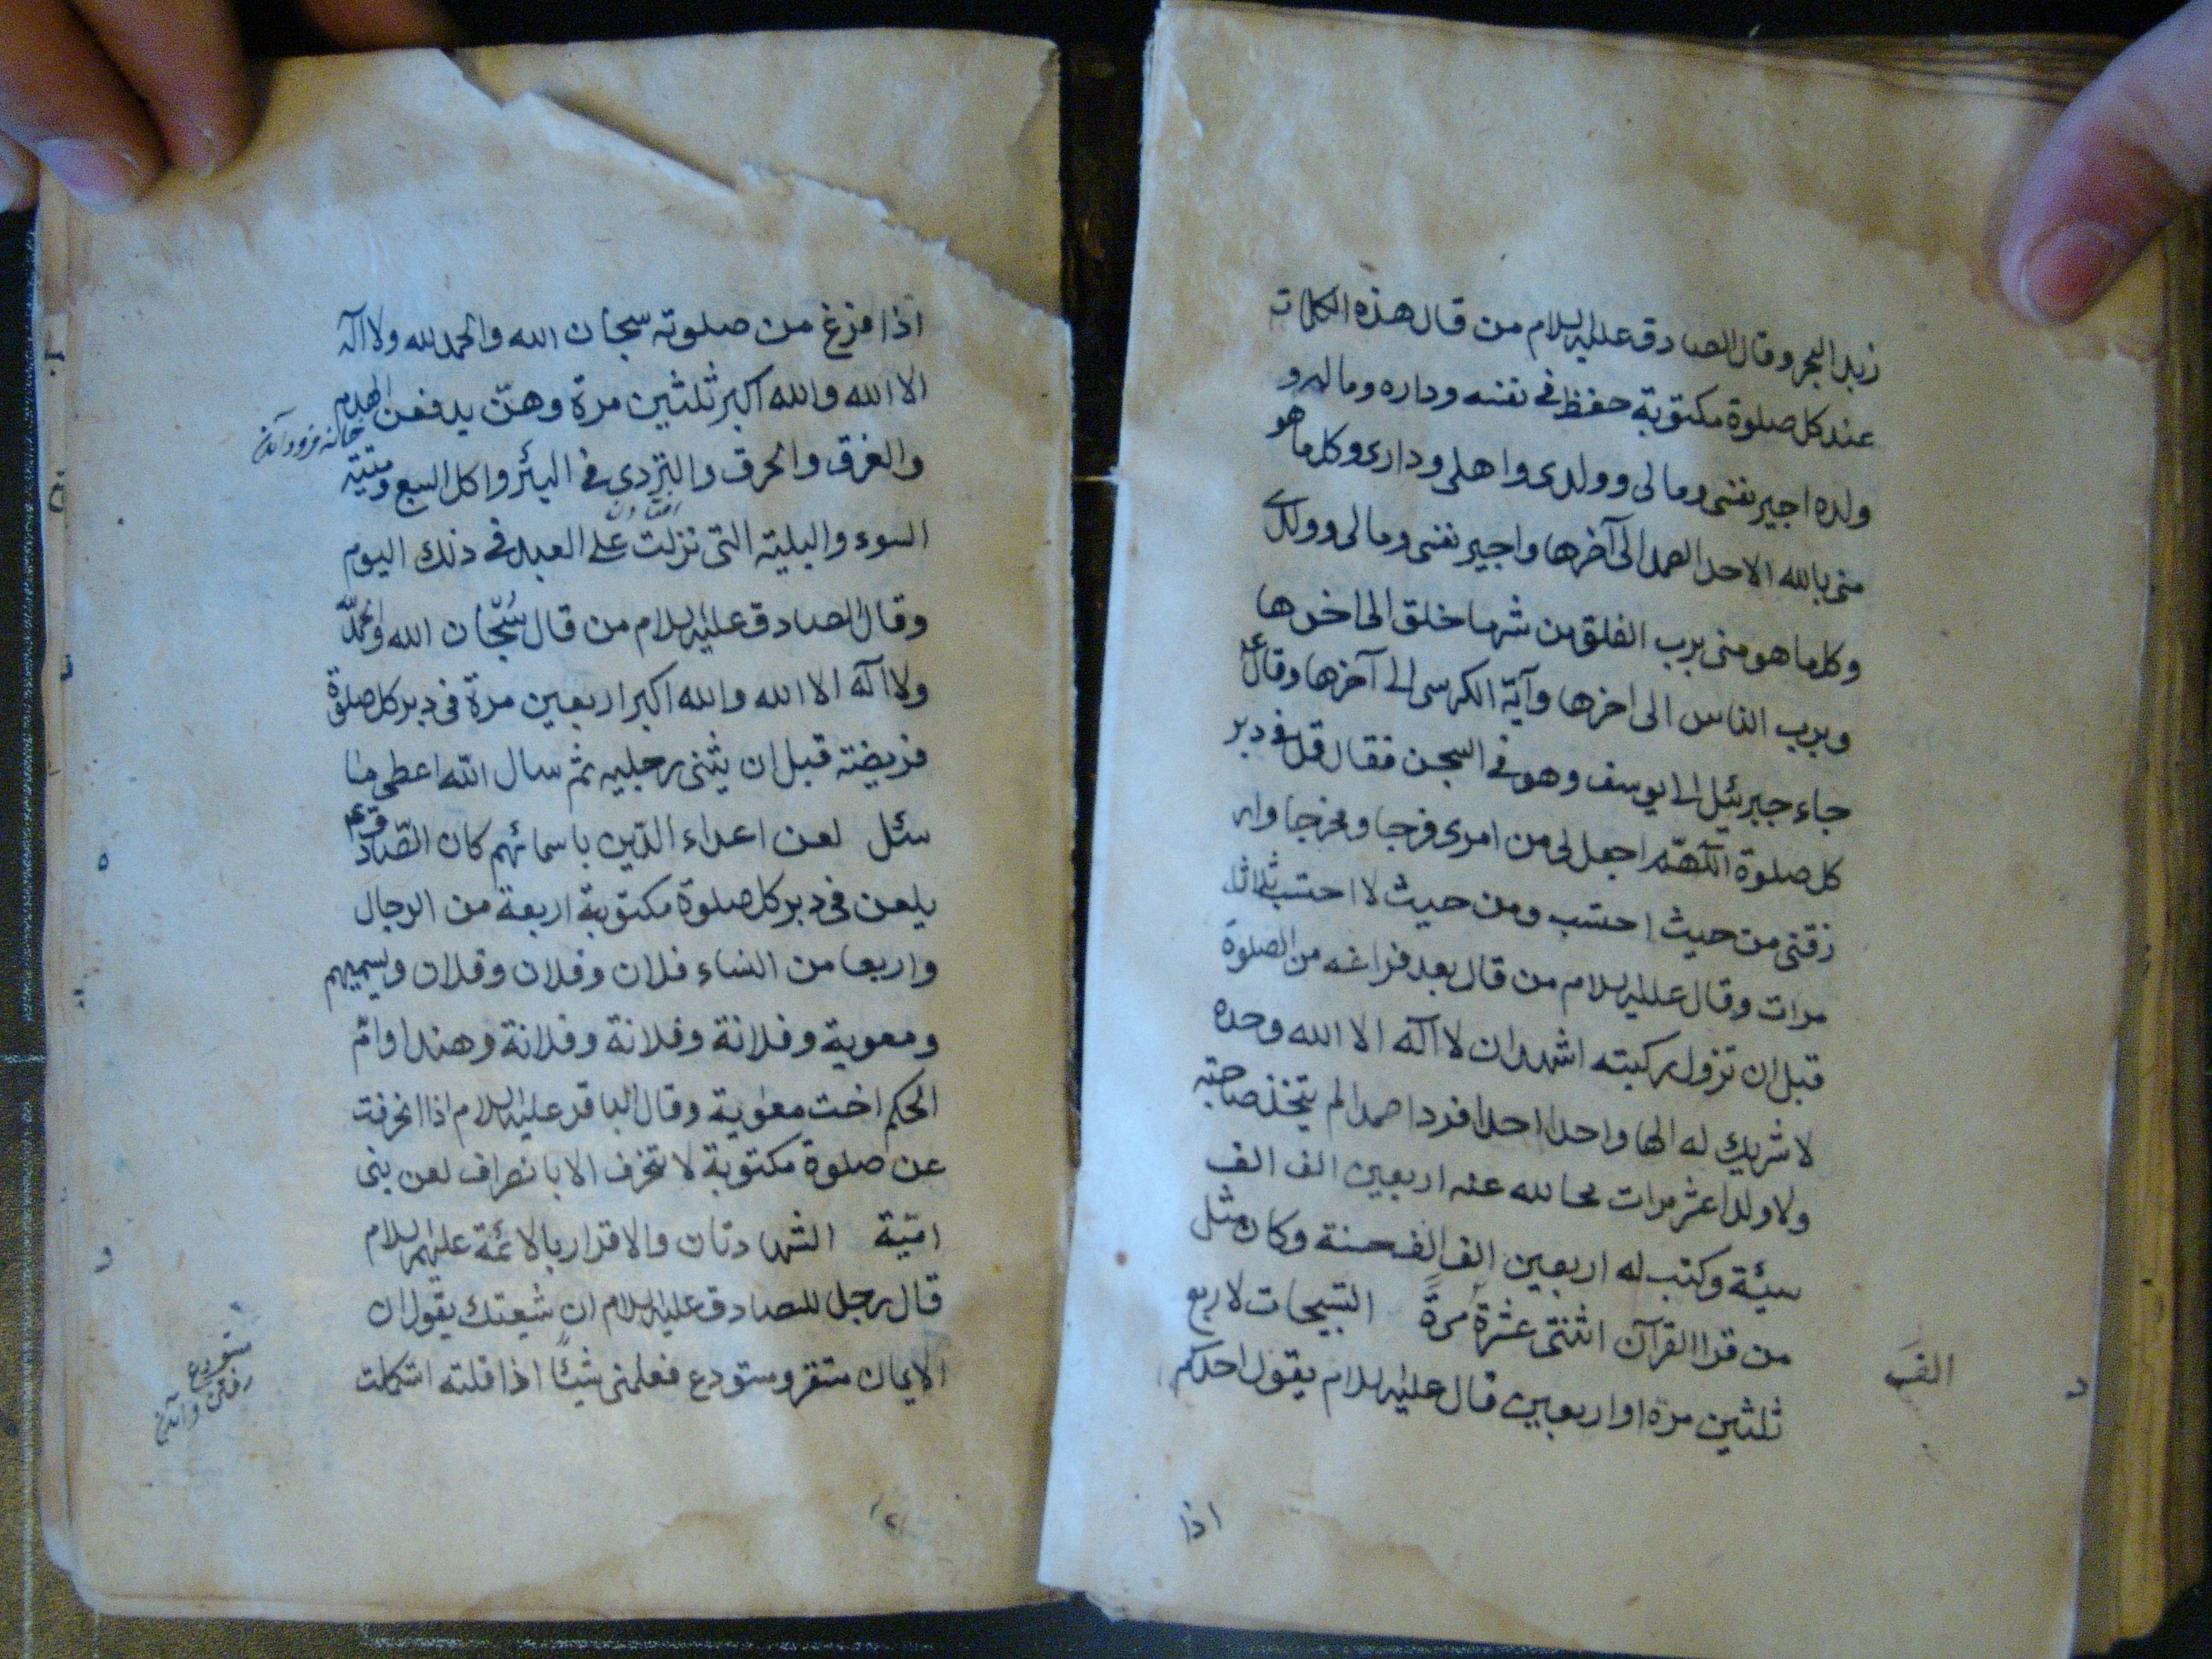 زبد البحر وقال الصادق عليه السلام من قال هذه الكلمات
عند كل صلوة مكتوبة حفظ في نفسه وداره وماله و
ولده اجير نفسى ومالى وولدى واهلى ودارى وكل ما هو
منى بالله الاحد الصمد الى آخرها واجير نفسى ومالى وولدى
وكل ما هو منى برب الفلق من شر ما خلق الى اخرها
وبرب الناس الى اخرها وآية الكرسى الى آخرها وقال ع
جاء جبرئيل الى يوسف وهو في السجن فقال قل في دبر
كل صلوة اللهم اجعل لى من امرى فرجا ومخرجا وار
زقنى من حيث احتسب ومن حيث لا احتسب ثلاث
مرات وقال عليه السلام من قال بعد فراغه من الصلوة
قبل ان تزول ركبته اشهد ان لا اله الا الله وحده
لا شريك له الها واحدا احدا فردا صمدا لم يتخذ صاحبة
ولا ولدا عشر مرات محا الله عنه اربعين الف الف
سيئة وكتب له اربعين الف الف حسنة وكان مثل
من قرا القرآن اثنتى عشرة مرةً التسبيحات لاربع
ثلثين مرة او اربعين قال عليه السلام يقول احدكم
الف
اذا
اذا فرغ من صلوته سبحان الله والحمد لله ولا اله
الا الله والله اكبر ثلثين مرة وهنّ يدفعن الهدم
خانه فرود آمدن
والغرق والحرق والتردى في البئر واكل السبع وميتة
افتادن
السوء والبلية التى نزلت على العبد في ذلك اليوم
وقال الصادق عليه السلام من قال سُبحان الله والحمد لله
ولا اله الا الله والله اكبر اربعين مرة في دبر كل صلوة
فريضة قبل ان يثنى رجليه ثم سال الله اعطى ما
سئل لعن اعداء الدّين باسمائهم كان الصّادق ع
يلعن في دبر كل صلوة مكتوبة اربعة من الرجال
واربعا من النساء فلان وفلان وفلان ويسميهم
ومعوية وفلانة وفلانة وفلانة وهندا وامّ
الحكم اخت معوية وقال الباقر عليه السلام اذا انحرفت
عن صلوة مكتوبة لا تنحرف الا بانصراف لعن بنى
اميّة الشهادتان والاقرار بالائمة عليهم السلام
قال رجل للصادق عليه السلام ان شيعتك يقول ان
الايمان مستقر ومستودع فعلمنى شيئاً اذا قلته استكملت
مستودع
رفتن وآمدن